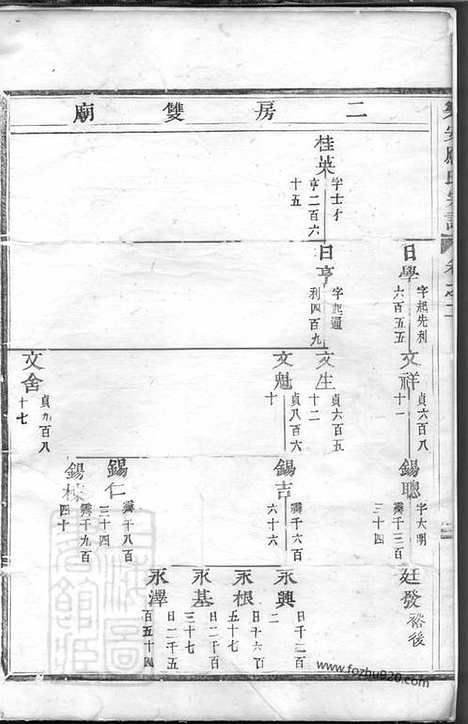 二房雙廟
日學
字起先利
六百五五
文祥
貞六百八
十一
錫聰
字大明
霽千三百
三十四
廷發
裕後
桂英
字士才
亨二百六
十五
日亨
字起通
利四百九
文生
貞六百五
十二
文魁
貞八百六
十
錫吉
霽千六百
六十六
永興
日千二百
二
永根
日十六百
五十七
永基
日二千二
三十七
永澤
日二千五
百五十四
錫仁
霽千八百
三十四
霽千九百
四十
文舍
貞九百八
十七
www.fozhu920.com